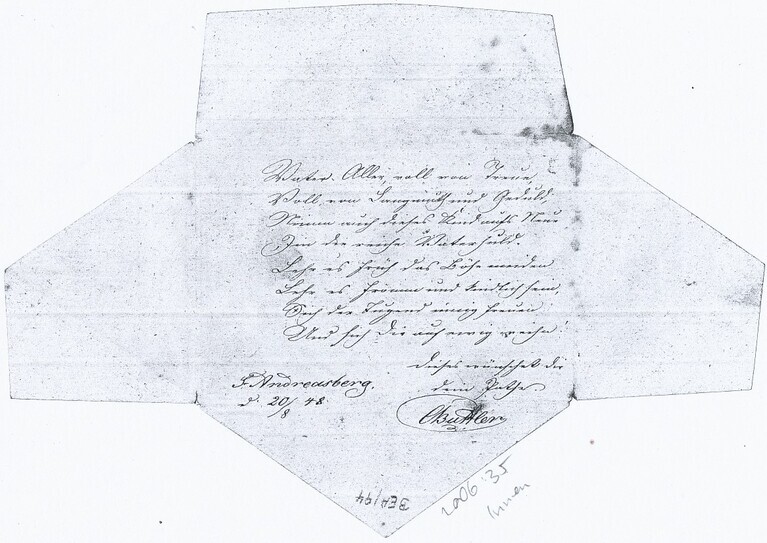 Vater Aller, voll von Treue,
Voll von Langmuth und Geduld,
Nimm auch dieses Kind aufs Neue
In die reiche Vaterhuld.
Lehr es früh das Böse meiden
Lehr es fromm und kindlich sein,
Sich der Tugend innig freuen
Und sich dir auf ewig weihn!
Dieses wünschet dir
dein Pathe
CButtler
St Andreasberg.
d. 20/8 48
BEH/94
2006:35
Innen